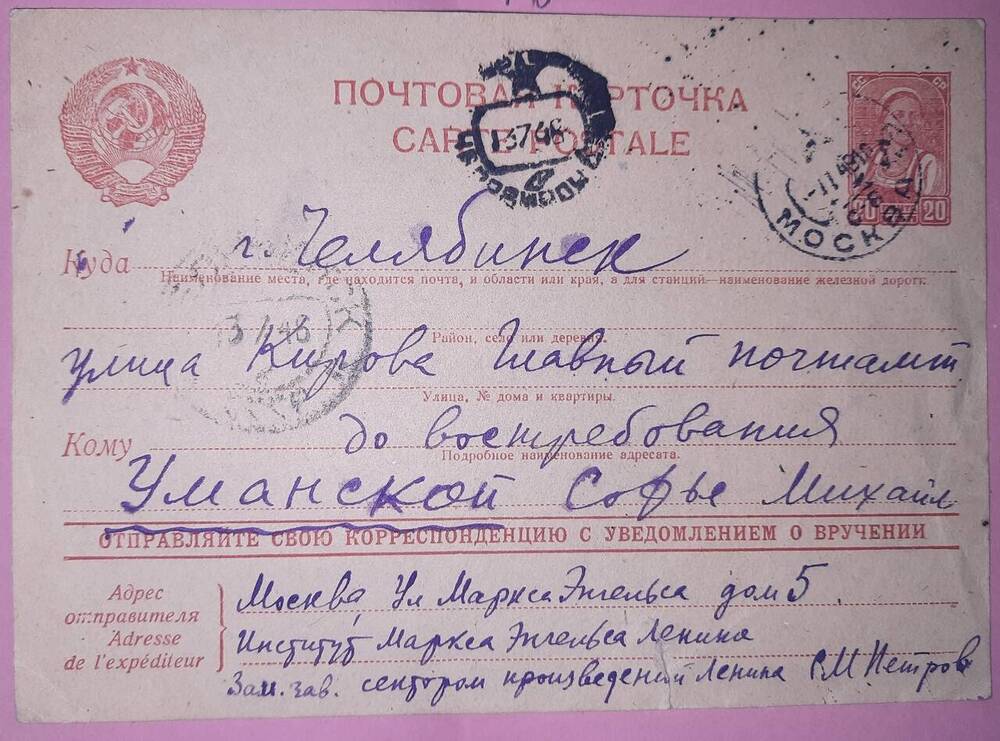 ПОЧТОВАЯ КАРТОЧКА
CARTE POSTALE
МОСКВА
13 7 48
20 20
Куда г. Челябинск
Наименование места, где находится почта, и области или края, а для станций наименование железной дороги.
Район, село или деревня.
улица Кирова Главный почтамт
Улица, № дома и квартиры
до востребования
Подробное наименование адресата.
Кому
Уманской Софье Михайл
ОТПРАВЛЯЙТЕ СВОЮ КОРРЕСПОНДЕНЦИЮ С УВЕДОМЛЕНИЕМ О ВРУЧЕНИИ
Адрес отправителя
Adresse de l'expéditeur
Москва Ул Маркса Энгельса дом 5
Институт Маркса Энгельса Ленина
Зам. зав. сектором произведений Ленина Петров